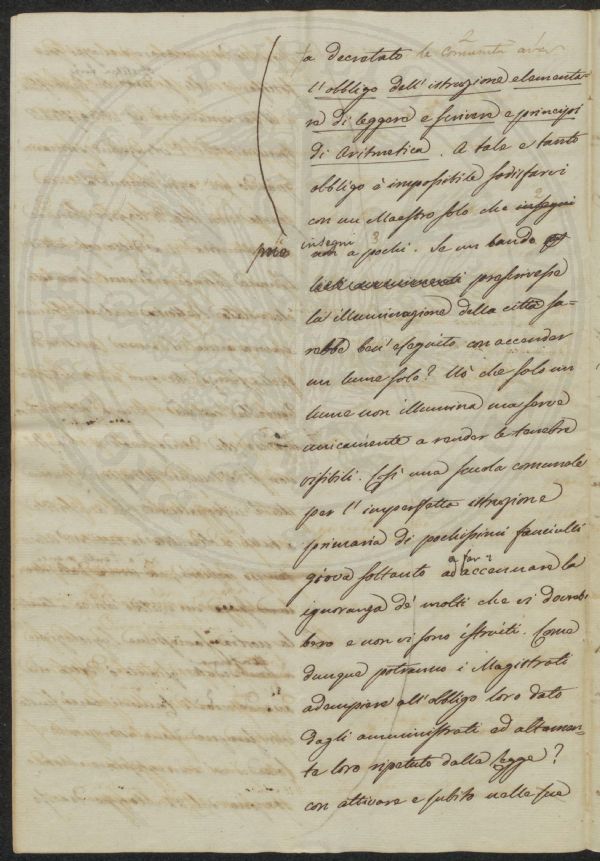 fa decretato le comunità aver
l'obbligo dell'istruzione elementa=
re di leggere e scrivere e principi
di Aritmetica. A tale e tanto
obbligo è impossibile sodisfarvi
con un Maestro solo che insegni
insegni
a pochi. Se un bando
prescrivesse
la illuminazione della città sa=
rebbe ben' eseguito con accender
un lume solo? Nò che solo un
lume non illumina ma serve
unicamente a render le tenebre
visibili. Così una scuola comunale
per l'imperfetta istruzione
primaria di pochissimi fanciulli
giova soltanto ad accennare la
ignoranza de' molti che vi dovreb
bero e non vi sono istruiti. Come
dunque potranno i Magistrati
adempiere all'obbligo loro dato
dagli amministrati ed altamen-
te loro ripetuto dalla legge?
con attivare e subito nelle sue